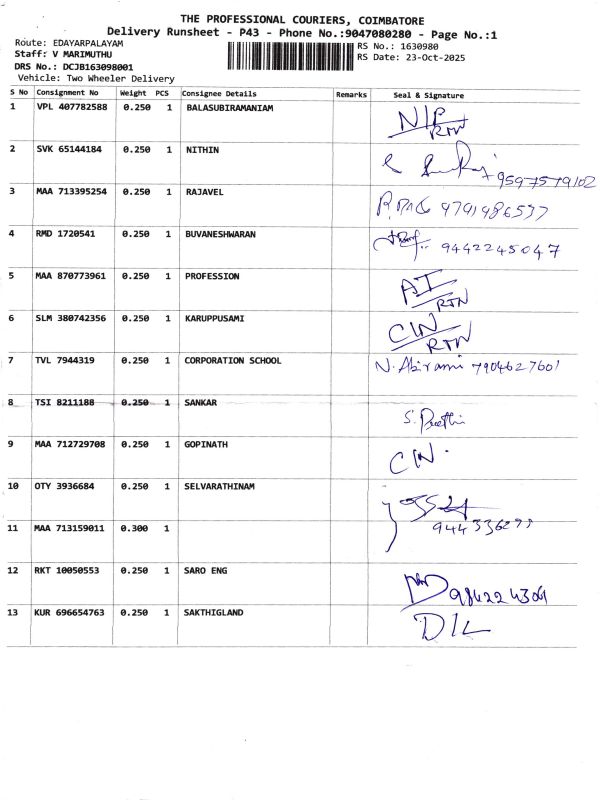 THE PROFESSIONAL COURIERS, COIMBATORE
Delivery Runsheet - P43 - Phone No.:9047080280 - Page No.:1
Route: EDAYARPALAYAM
Staff: V MARIMUTHU
DRS No.: DCJB163098001
Vehicle: Two Wheeler Delivery
RS No.: 1630980
RS Date: 23-Oct-2025
S No Consignment No Weight PCS Consignee Details Remarks Seal & Signature
1 VPL 407782588 0.250 1 BALASUBIRAMANIAM
RTN
2 SVK 65144184 0.250 1 NITHIN
9597579102
3 MAA 713395254 0.250 1 RAJAVEL
4 RMD 1720541 0.250 1 BUVANESHWARAN
9442245047
5 MAA 870773961 0.250 1 PROFESSION
RTN
6 SLM 380742356 0.250 1 KARUPPUSAMI CIN
RTN
7 TVL 7944319 0.250 1 CORPORATION SCHOOL N. Abirami 7904627601
8 TSI 8211188 0.250 1 SANKAR
S. Preethi
9 MAA 712729708 0.250 1 GOPINATH
CIN.
10 OTY 3936684 0.250 1 SELVARATHINAM
11 MAA 713159011 0.300 1
12 RKT 10050553 0.250 1 SARO ENG
13 KUR 696654763 0.250 1 SAKTHIGLAND
D/L